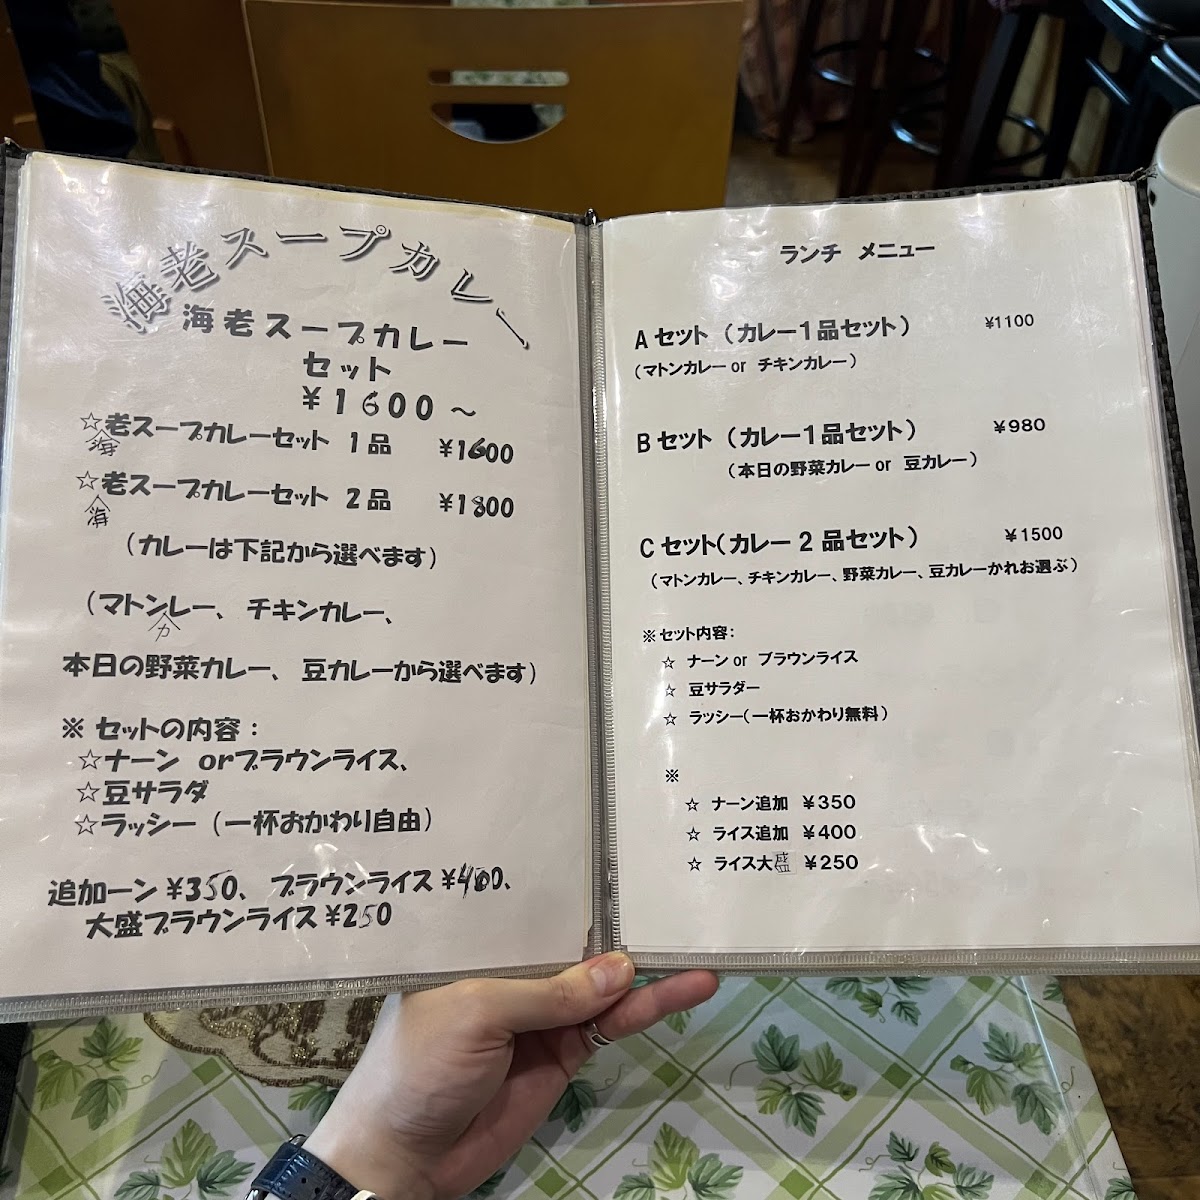 海老スープカレー
海老スープカレー
セット
￥1600～
☆海老スープカレーセット 1品 ￥1600
☆海老スープカレーセット 2品 ￥1800
（カレーは下記から選べます）
（マトンカレー、チキンカレー、
本日の野菜カレー、豆カレーから選べます）
※ セットの内容：
☆ナーン orブラウンライス、
☆豆サラダ
☆ラッシー（一杯おかわり自由）
追加ーン￥350、ブラウンライス￥400、
大盛ブラウンライス￥250
ランチ メニュー
Aセット（カレー1品セット） ￥1100
（マトンカレーor チキンカレー）
Bセット（カレー1品セット） ￥980
（本日の野菜カレーor 豆カレー）
Cセット（カレー2品セット） ￥1500
（マトンカレー、チキンカレー、野菜カレー、豆カレーかれお選ぶ）
※セット内容：
☆ ナーンor ブラウンライス
☆ 豆サラダー
☆ ラッシー（一杯おかわり無料）
※
☆ ナーン追加 ￥350
☆ ライス追加 ￥400
☆ ライス大盛 ￥250